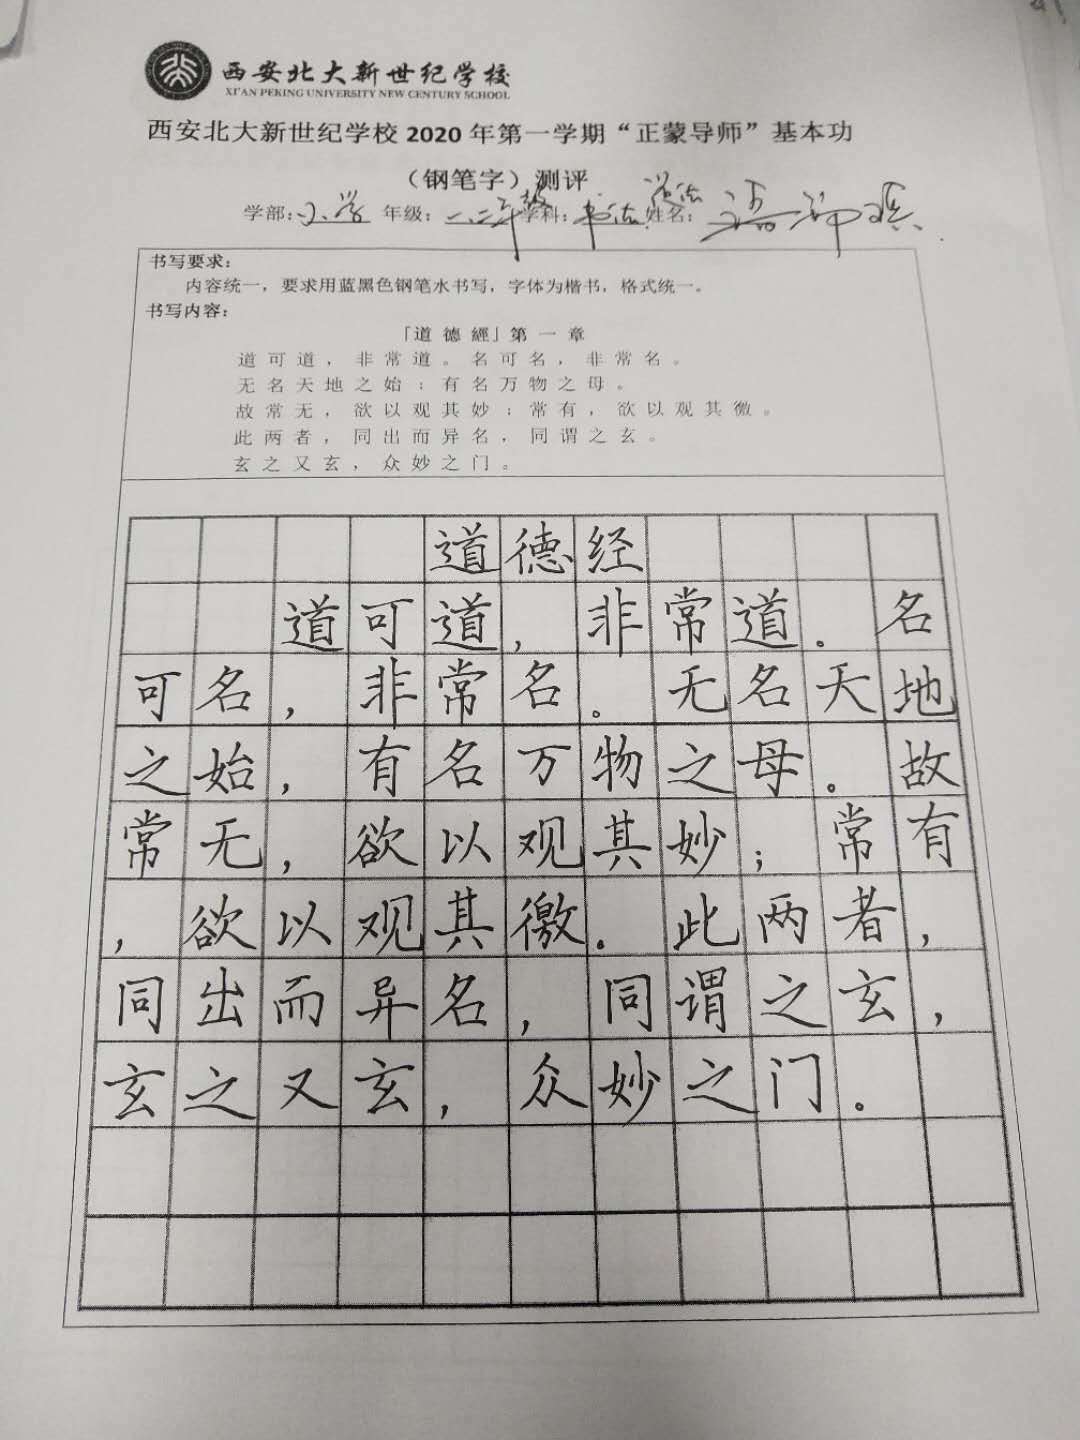 西安北大新世纪学校
XI'AN PEKING UNIVERSITY NEW CENTURY SCHOOL
西安北大新世纪学校 2020 年第一学期“正蒙导师”基本功
（钢笔字）测评
学部：小学 年级：一、二年级 学科：书法 姓名：
书写要求：
内容统一，要求用蓝黑色钢笔水书写，字体为楷书，格式统一。
书写内容：
「道德經」第一章
道可道，非常道。名可名，非常名。
无名天地之始；有名万物之母。
故常无，欲以观其妙；常有，欲以观其微。
此两者，同出而异名，同谓之玄。
玄之又玄，众妙之门。
道德经
道可道，非常道。名
可名，非常名。无名天地
之始，有名万物之母。故
常无，欲以观其妙；常有
，欲以观其徼。此两者，
同出而异名，同谓之玄，
玄之又玄，众妙之门。